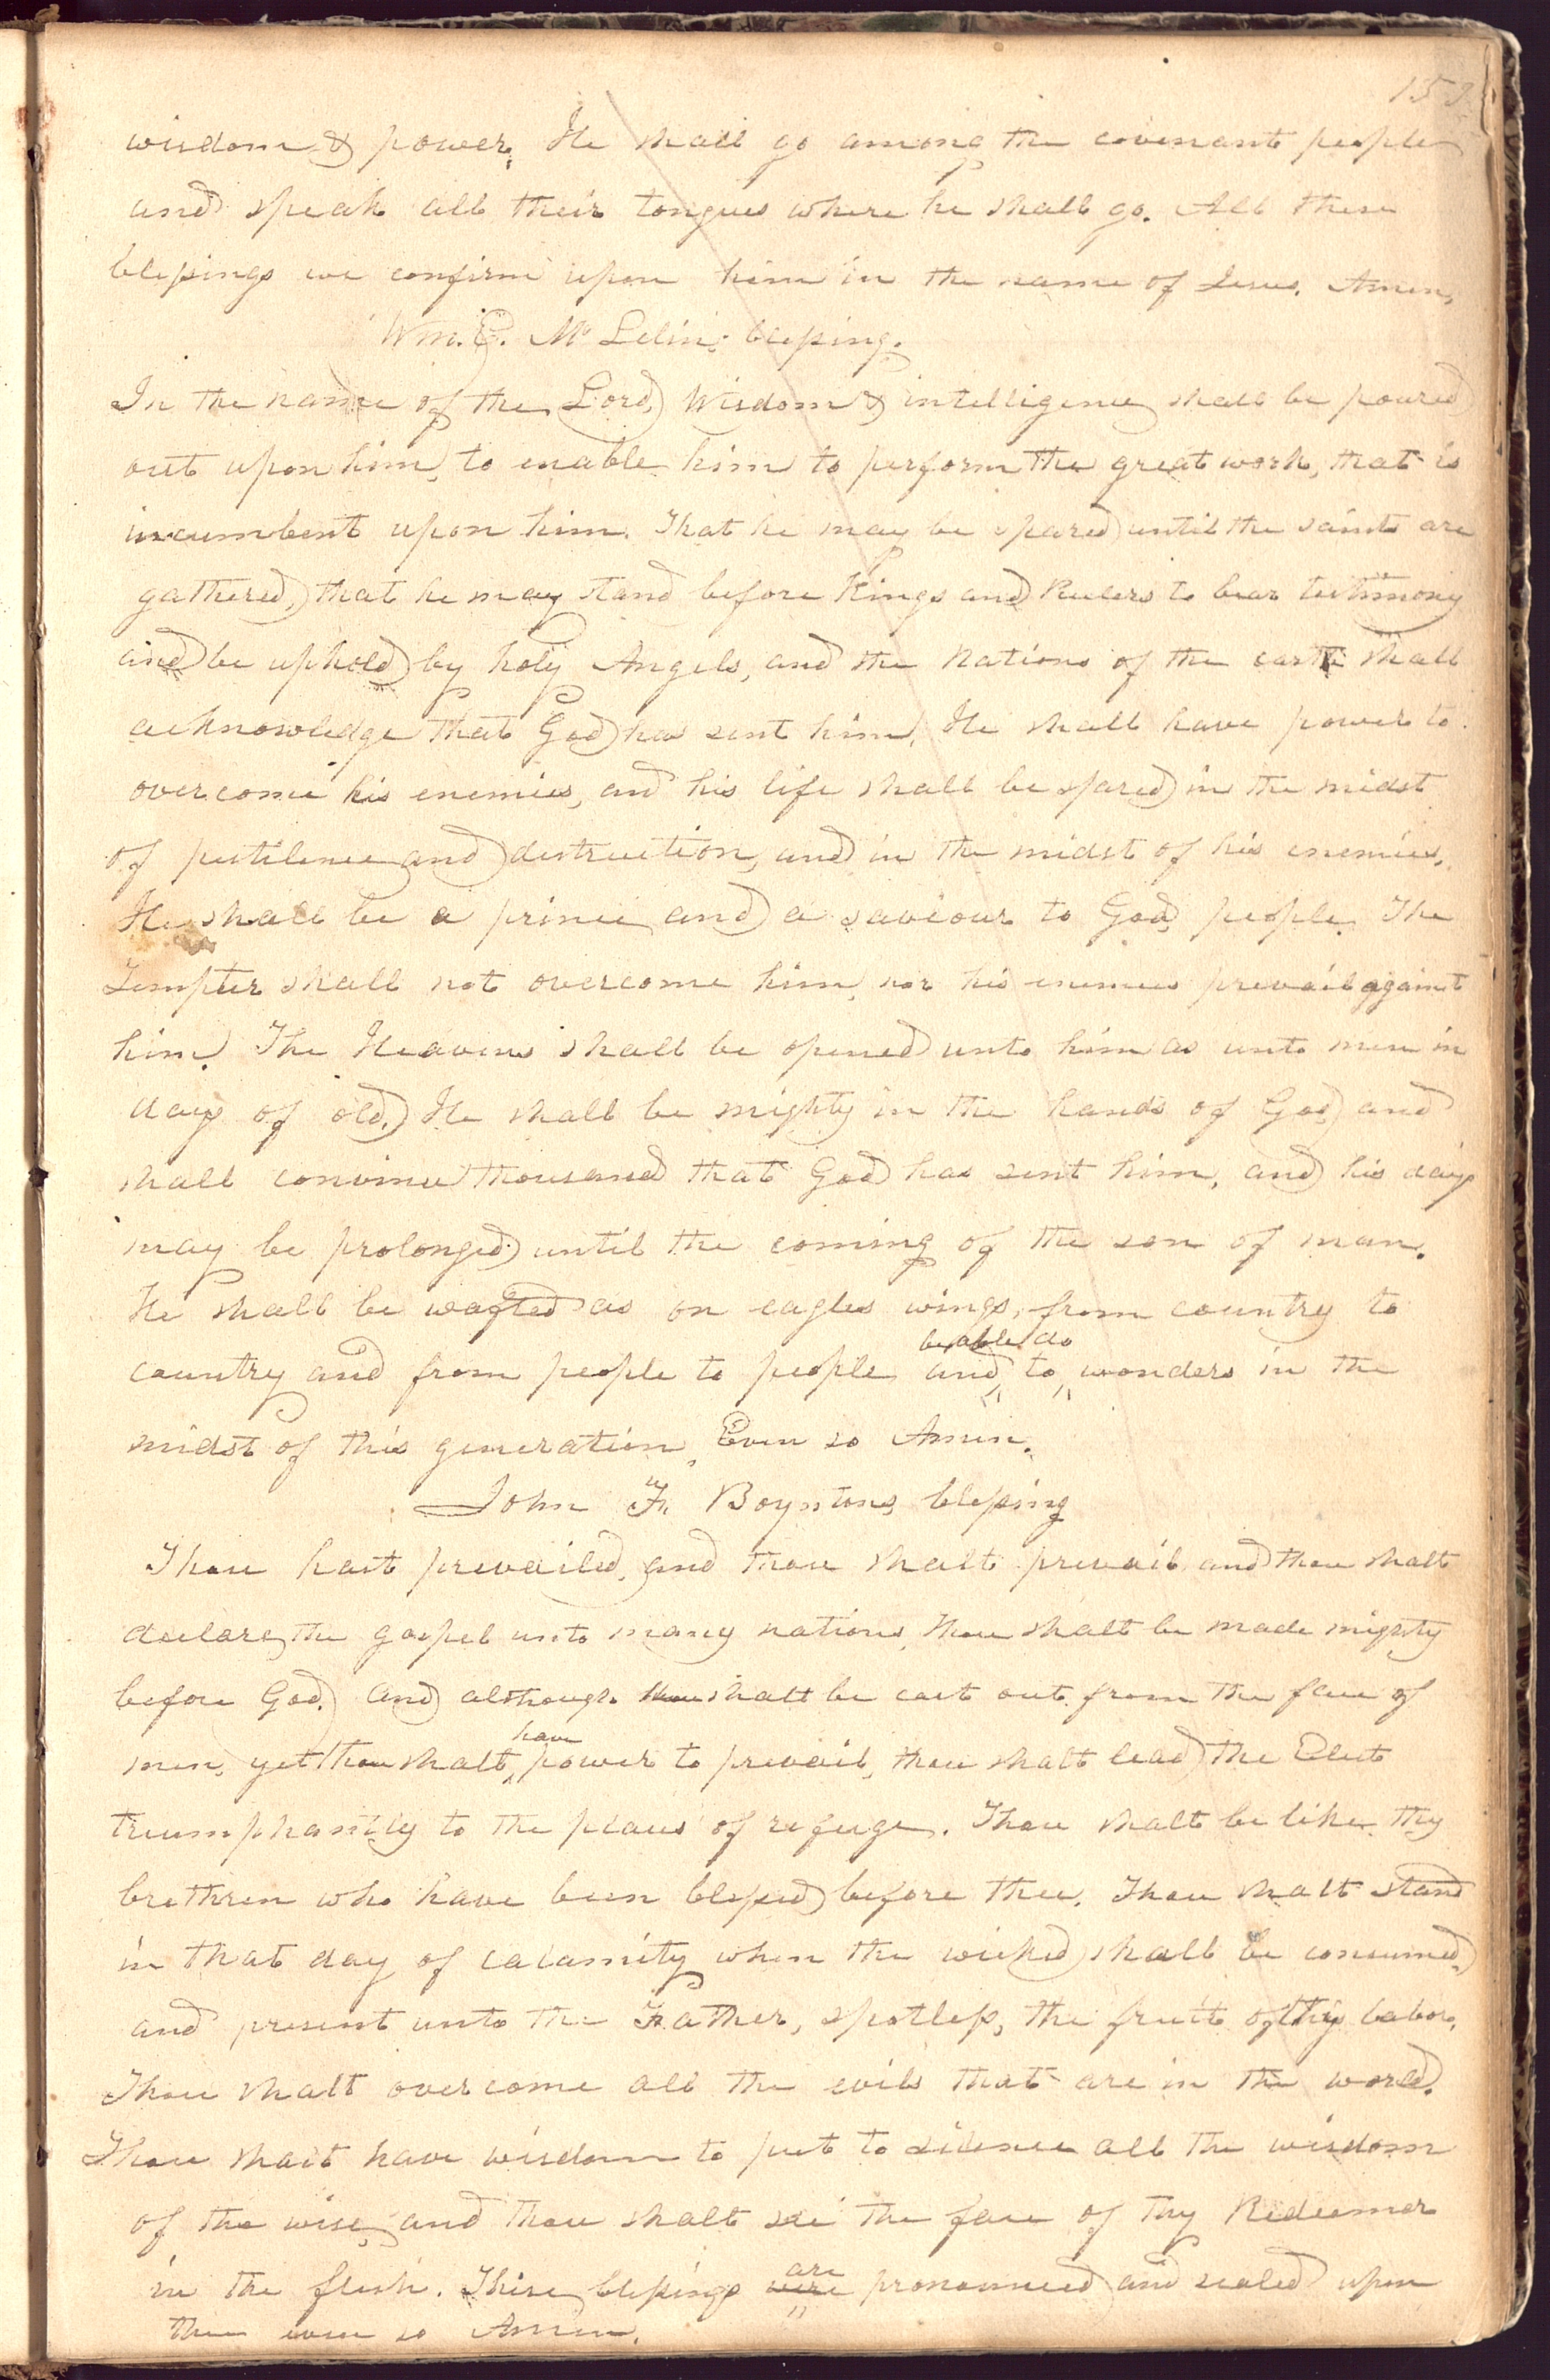 wisdom & power. He shall go among the covenant people
and speak all their tongues where he shall go. All these
blessings we confirm upon him in the name of Jesus. Amen.
Wm. E. Mc Lelin,s blessing.
In the name of the Lord, Wisdom & intelligence shall be poured
out upon him, to enable him to perform the great work, that is
incumbent upon him. That he may be spared until the saints are
gathered, that he may stand before Kings and Rulers to bear testimony
and be uphold by holy Angels, and the Nations of the earth shall
acknowledge that God has sent him, He shall have power to
overcome his enemies, and his life shall be spared in the midst
of pestilence and destruction, and in the midst of his enemies.
He shall be a prince and a saviour to God,s people. The
Tempter shall not overcome him, nor his enemies prevail against
him. The Heavens shall be opened unto him as unto men in
days of old. He shall be mighty in the hands of God, and
shall convince thousands that God has sent him, and his days
may be prolonged until the coming of the son of man.
He shall be wafted as on eagles wings, from country to
country and from people to people, and be able to do wonders in the
midst of this generation. Even so Amen.
John F. Boyntons, blessing
Thou hast prevailed, and thou shalt prevail, and thou shalt
declare, the gospel unto many nations, Thou shalt be made mighty
before God. and although thou shalt be cast out from the face of
men, yet thou shalt have power to prevail, thou shalt lead the Elect
triumphantly to the places of refuge. Thou shalt be like thy
brethren who have been blessed before thee. Thou shalt stand
in that day of calamity when the wicked shall be consumed,
and present unto the Father, spotless, the fruit of thy labor.
Thou shalt overcome all the evils that are in the world.
Thou shalt have wisdom to put to silence all the wisdom
of the wise, and thou shalt see the face of thy Redeemer
in the flesh. These blessings were are pronounced and sealed upon
thee even so Amen.